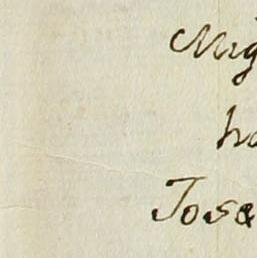 Mig
ha
Jose